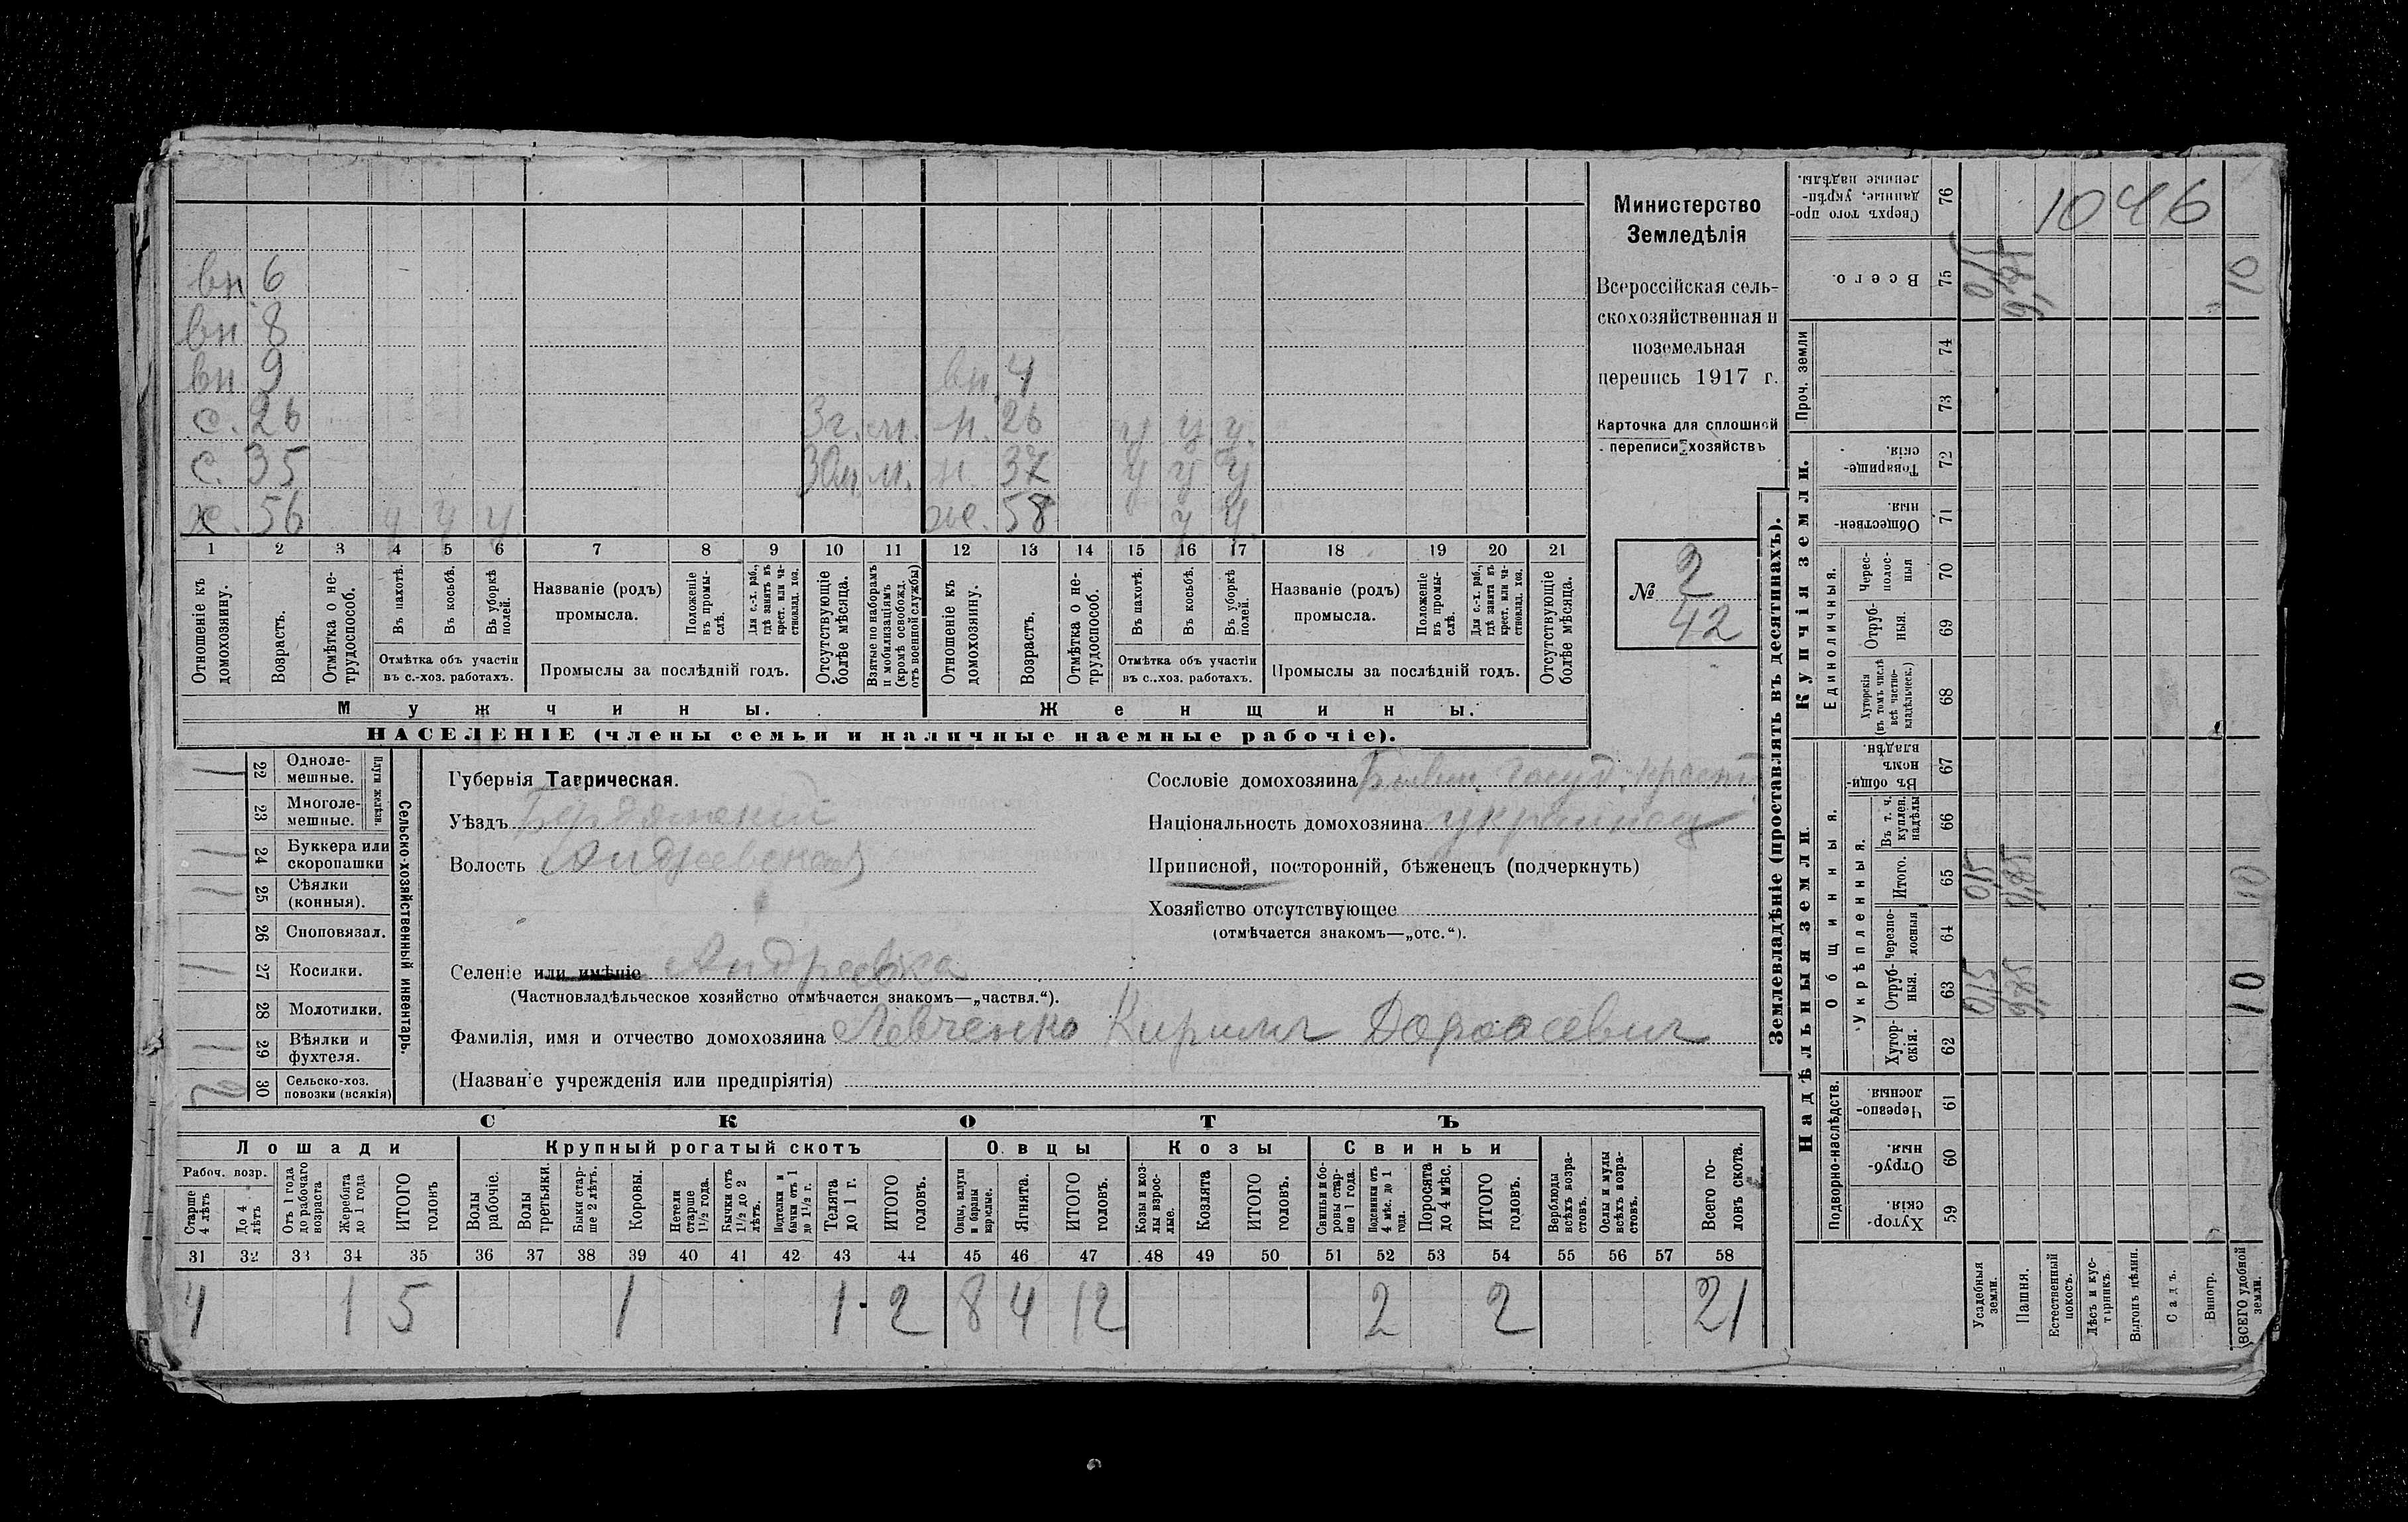 вн. 6
вн. 8
вн. 9 вн. 4
с. 26 3 г. м. н. 26 у у у
с. 35 30 м. м. н. 37 у у у
х. 56 у у у ж. 58 у у
1 2 3 4 5 6 7 8 9 10 11 12 13 14 15 16 17 18 19 20 21
Отношеніе къ домохозяину.
Возрастъ.
Отмѣтка о не-трудоспособ.
Въ пахотѣ.
Въ косьбѣ.
Въ уборкѣ полей.
Отмѣтка объ участіи въ с.-хоз. работахъ.
Названіе (родъ) промысла.
Положеніе въ промы-слѣ.
Для с.-х. раб., гдѣ занятъ въ крест. или ча-стновлад. хоз.
Промыслы за послѣдній годъ.
Отсутствующіе болѣе мѣсяца.
Взятые по наборамъ и мобилизаціямъ (кромѣ освобожд. отъ военной службы)
Отношеніе къ домохозяину.
Возрастъ.
Отмѣтка о не-трудоспособ.
Въ пахотѣ.
Въ косьбѣ.
Въ уборкѣ полей.
Отмѣтка объ участіи въ с.-хоз. работахъ.
Названіе (родъ) промысла.
Положеніе въ промы-слѣ.
Для с.-х. раб., гдѣ занята въ крест. или ча-стновлад. хоз.
Промыслы за послѣдній годъ.
Отсутствующіе болѣе мѣсяца.
Мужчины. Женщины.
НАСЕЛЕНІЕ (члены семьи и наличные наемные рабочіе).
Министерство
Земледѣлія
Всероссійская сель-
скохозяйственная и
поземельная
перепись 1917 г.
Карточка для сплошной
переписи хозяйствъ
№ 2
42
Плуги желѣзн.
22 Одноле-мешные. 1
23 Многоле-мешные.
24 Буккера или скоропашки 1
25 Сѣялки (конныя). 1
26 Сноповязал.
27 Косилки. 1
28 Молотилки.
29 Вѣялки и фухтеля. 1
30 Сельско-хоз. повозки (всякія) 2
Сельско-хозяйственный инвентарь.
Губернія Таврическая.
Уѣздъ Бердянскій
Волость Андреевская
Селеніе или имѣніе Андреевка
(Частновладѣльческое хозяйство отмѣчается знакомъ—„частвл.“).
Фамилія, имя и отчество домохозяина Левченко Кирилл
(Названіе учрежденія или предпріятія)
Сословіе домохозяина Бывш. госуд. крест.
Національность домохозяина украинец
Приписной, посторонній, бѣженецъ (подчеркнуть)
Хозяйство отсутствующее
(отмѣчается знакомъ—„отс.“).
СКОТЪ
Лошади Крупный рогатый скотъ Овцы Козы Свиньи
Рабоч. возр.
Старше 4 лѣтъ
До 4 лѣтъ
Отъ 1 года до рабочаго возраста
Жеребята до 1 года
ИТОГО головъ
Волы рабочіе.
Волы третьяки.
Быки стар-ше 2 лѣтъ.
Коровы.
Нетели старше 1½ года.
Бычки отъ 1½ до 2 лѣтъ.
Подтелки и бычки отъ 1 до 1½ г.
Телята до 1 г.
ИТОГО головъ.
Овцы, валухи и бараны взрослые.
Ягнята.
ИТОГО головъ.
Козы и коз-лы взрос-лые.
Козлята
ИТОГО головъ.
Свиньи и бо-ровы стар-ше 1 года.
Подсвинки отъ 4 мѣс. до 1 года.
Поросята до 4 мѣс.
ИТОГО головъ.
Верблюды всѣхъ возра-стовъ.
Ослы и мулы всѣхъ возра-стовъ.
Всего го-ловъ скота.
31 32 33 34 35 36 37 38 39 40 41 42 43 44 45 46 47 48 49 50 51 52 53 54 55 56 57 58
4 1 5 1 1 2 8 4 12 2 2 21
Землевладѣніе (проставлять въ десятинахъ).
Купчія земли.
Надѣльныя земли.
Проч. земли
Единоличныя.
Общинныя.
Укрѣпленныя.
Подворно-наслѣдств.
Сверхъ того про-данные, укрѣп-ленные надѣлы. 76
1046
Всего. 75 0,15 9,85 10
74
73
Товарище-скія. 72
Обществен-ныя. 71
Черес-полос-ныя 70
Отруб-ныя. 69
Хуторскія (въ томъ числѣ всѣ частно-владѣльческ.) 68
Въ общин-номъ владѣн. 67
Въ т. ч. куплен. надѣлы 66
Итого. 65 0,15 9,85 10
Черезпо-лосныя 64
Отруб-ныя. 63 0,15 9,85 10
Хутор-скія. 62
Черезпо-лосныя. 61
Отруб-ныя. 60
Хутор-скія. 59
Усадебныя земли.
Пашня.
Естественный покосъ.
Лѣсъ и кус-тарникъ.
Выгонъ цѣлин.
Садъ.
Виногр.
ВСЕГО удобной земли.